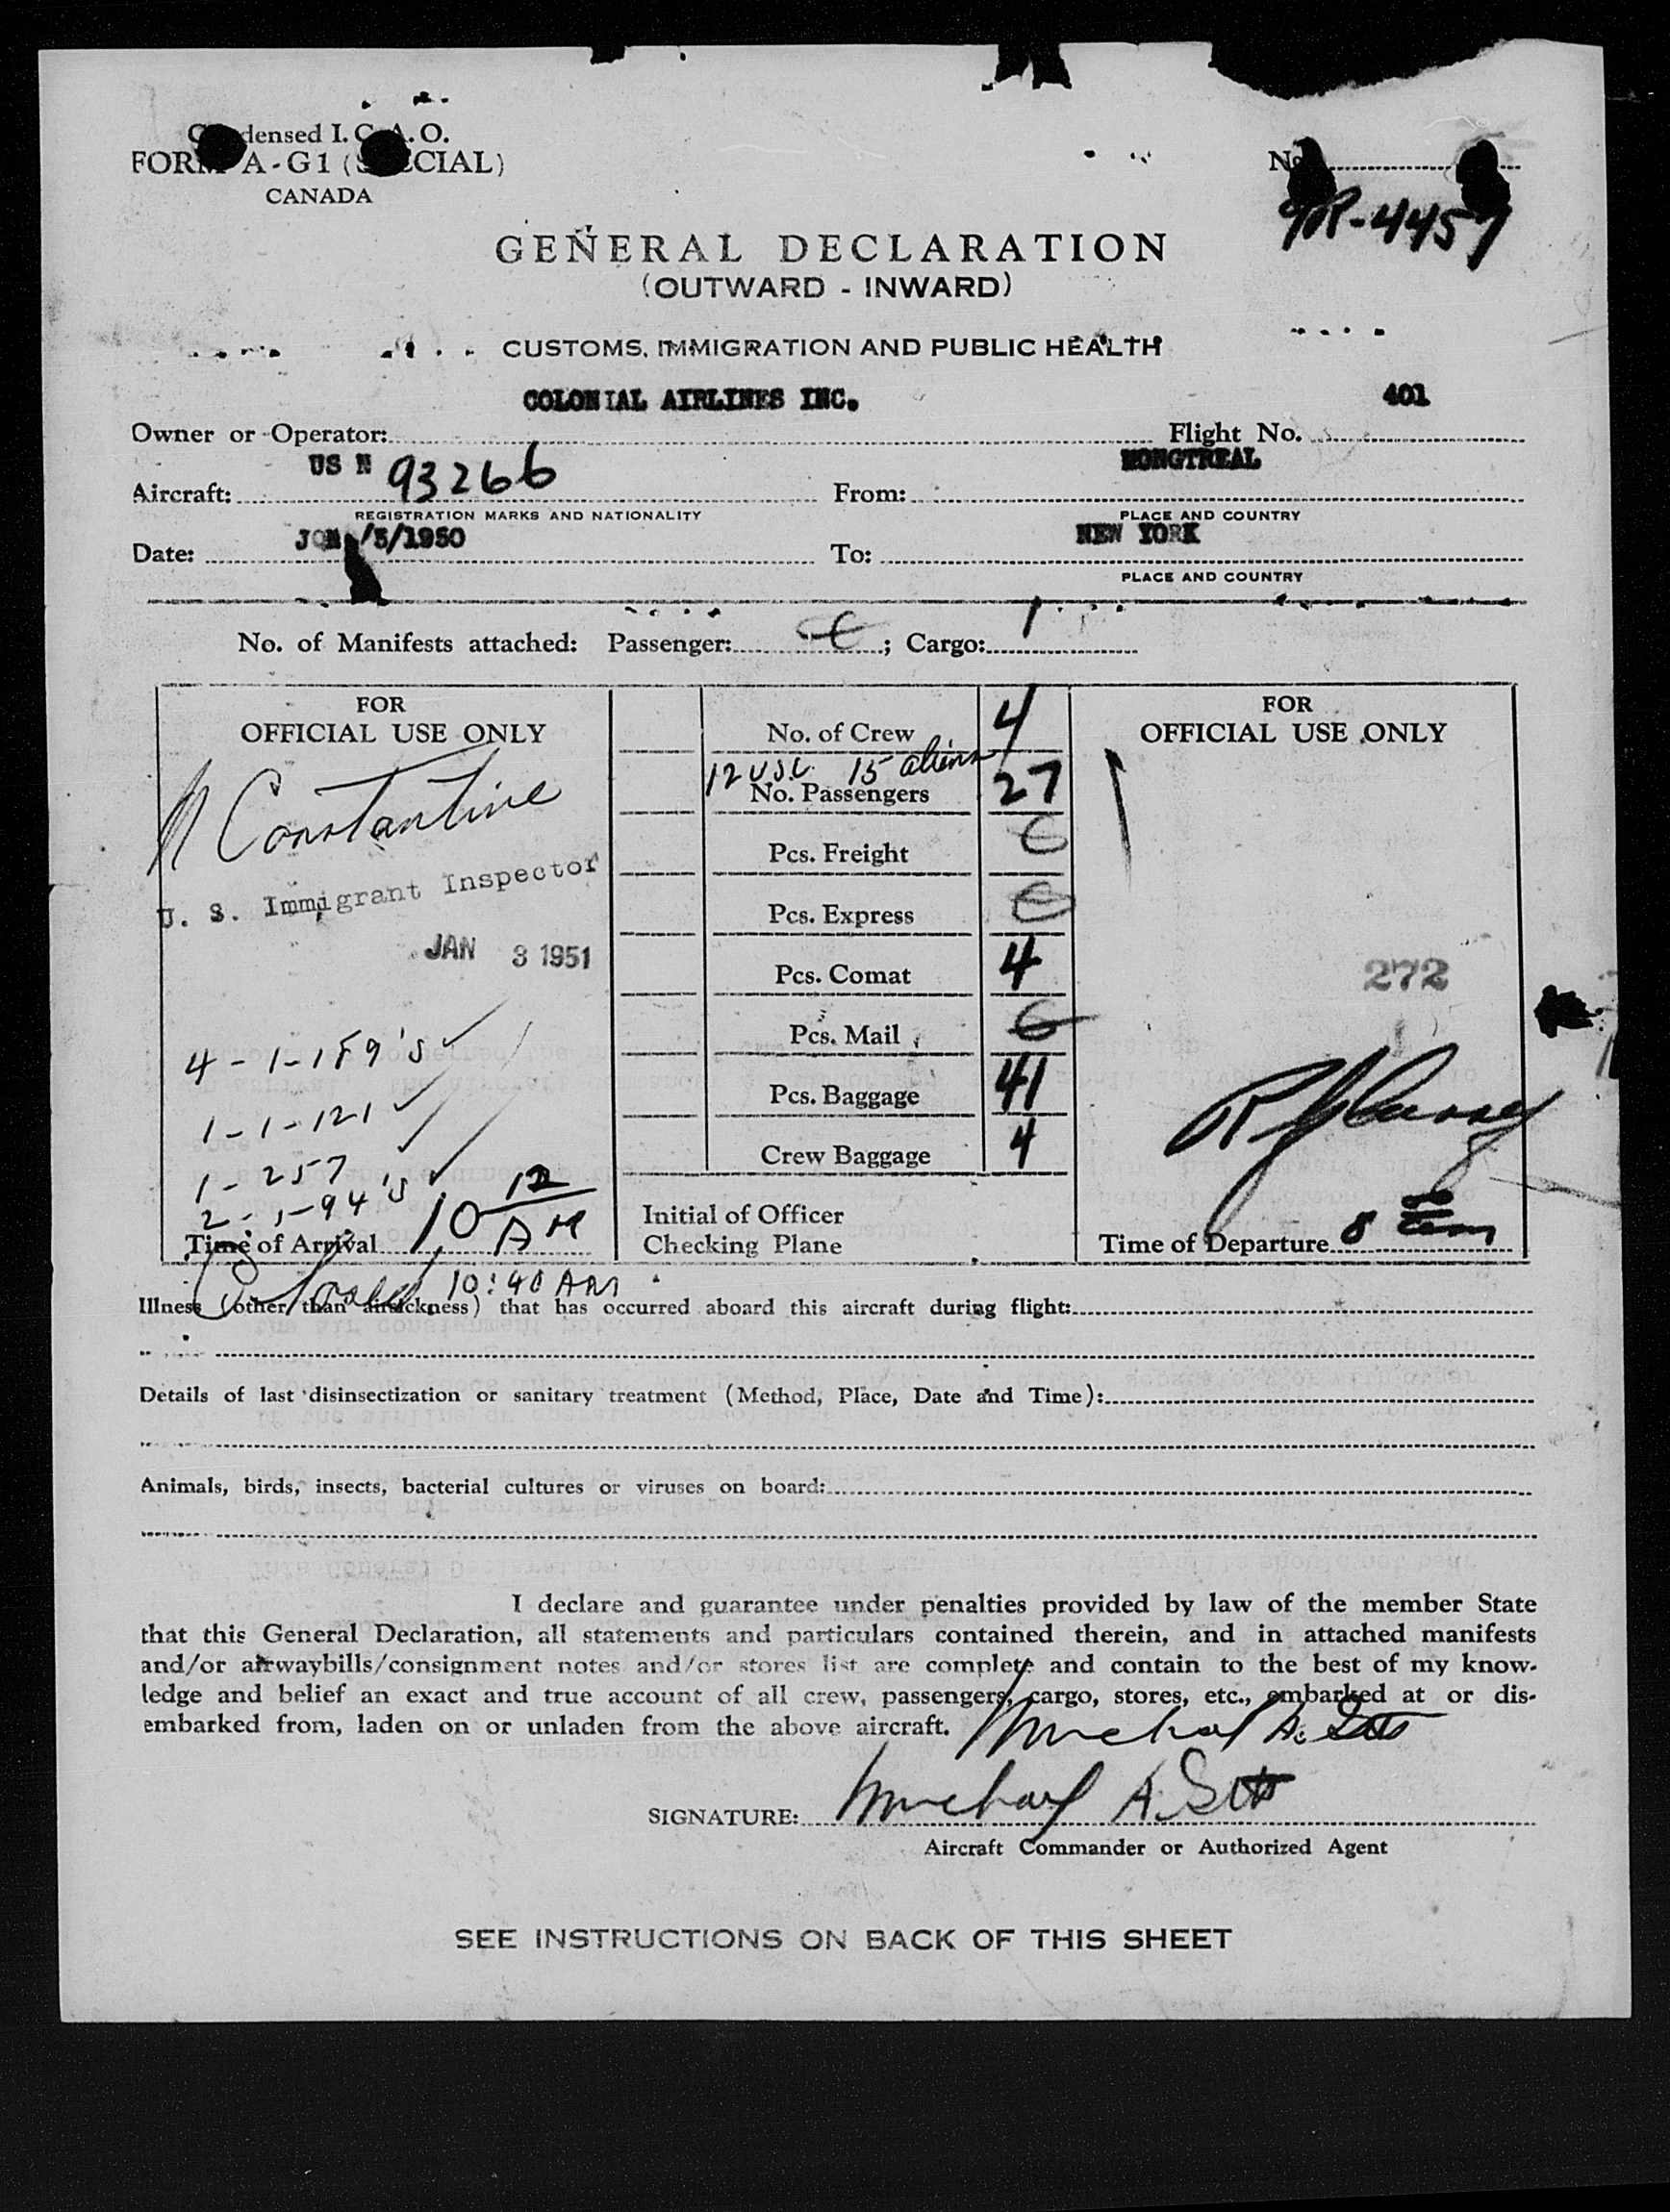 Condensed I.C.A.O.
FORM A-G1 (SPECIAL)
CANADA
No.
GENERAL DECLARATION
(OUTWARD - INWARD)
CUSTOMS, IMMIGRATION AND PUBLIC HEALTH
COLONIAL AIRLINES INC. 401
Owner or Operator: Flight No.
US N 93266 MONGTREAL
Aircraft: From:
REGISTRATION MARKS AND NATIONALITY PLACE AND COUNTRY
/3/1950 NEW YORK
Date: To:
PLACE AND COUNTRY
No. of Manifests attached: Passenger: ; Cargo: 1
FOR
OFFICIAL USE ONLY
Constantine
U. S. Immigrant Inspector
JAN 3 1951
4-1-189's
1-1-121
1-257
2-1-94's
Time of Arrival 10 12 AM
10:40 AM
No. of Crew 4
12 USC 15 aliens
No. Passengers 27
Pcs. Freight
Pcs. Express
Pcs. Comat 4
Pcs. Mail
Pcs. Baggage 41
Crew Baggage 4
Initial of Officer
Checking Plane
FOR
OFFICIAL USE ONLY
272
Time of Departure 8
Illness (other than airsickness) that has occurred aboard this aircraft during flight:
Details of last disinsectization or sanitary treatment (Method, Place, Date and Time):
Animals, birds, insects, bacterial cultures or viruses on board:
I declare and guarantee under penalties provided by law of the member State
that this General Declaration, all statements and particulars contained therein, and in attached manifests
and/or airwaybills/consignment notes and/or stores list are complete and contain to the best of my know-
ledge and belief an exact and true account of all crew, passengers, cargo, stores, etc., embarked at or dis-
embarked from, laden on or unladen from the above aircraft.
Michael A.
SIGNATURE: Michael A.
Aircraft Commander or Authorized Agent
SEE INSTRUCTIONS ON BACK OF THIS SHEET